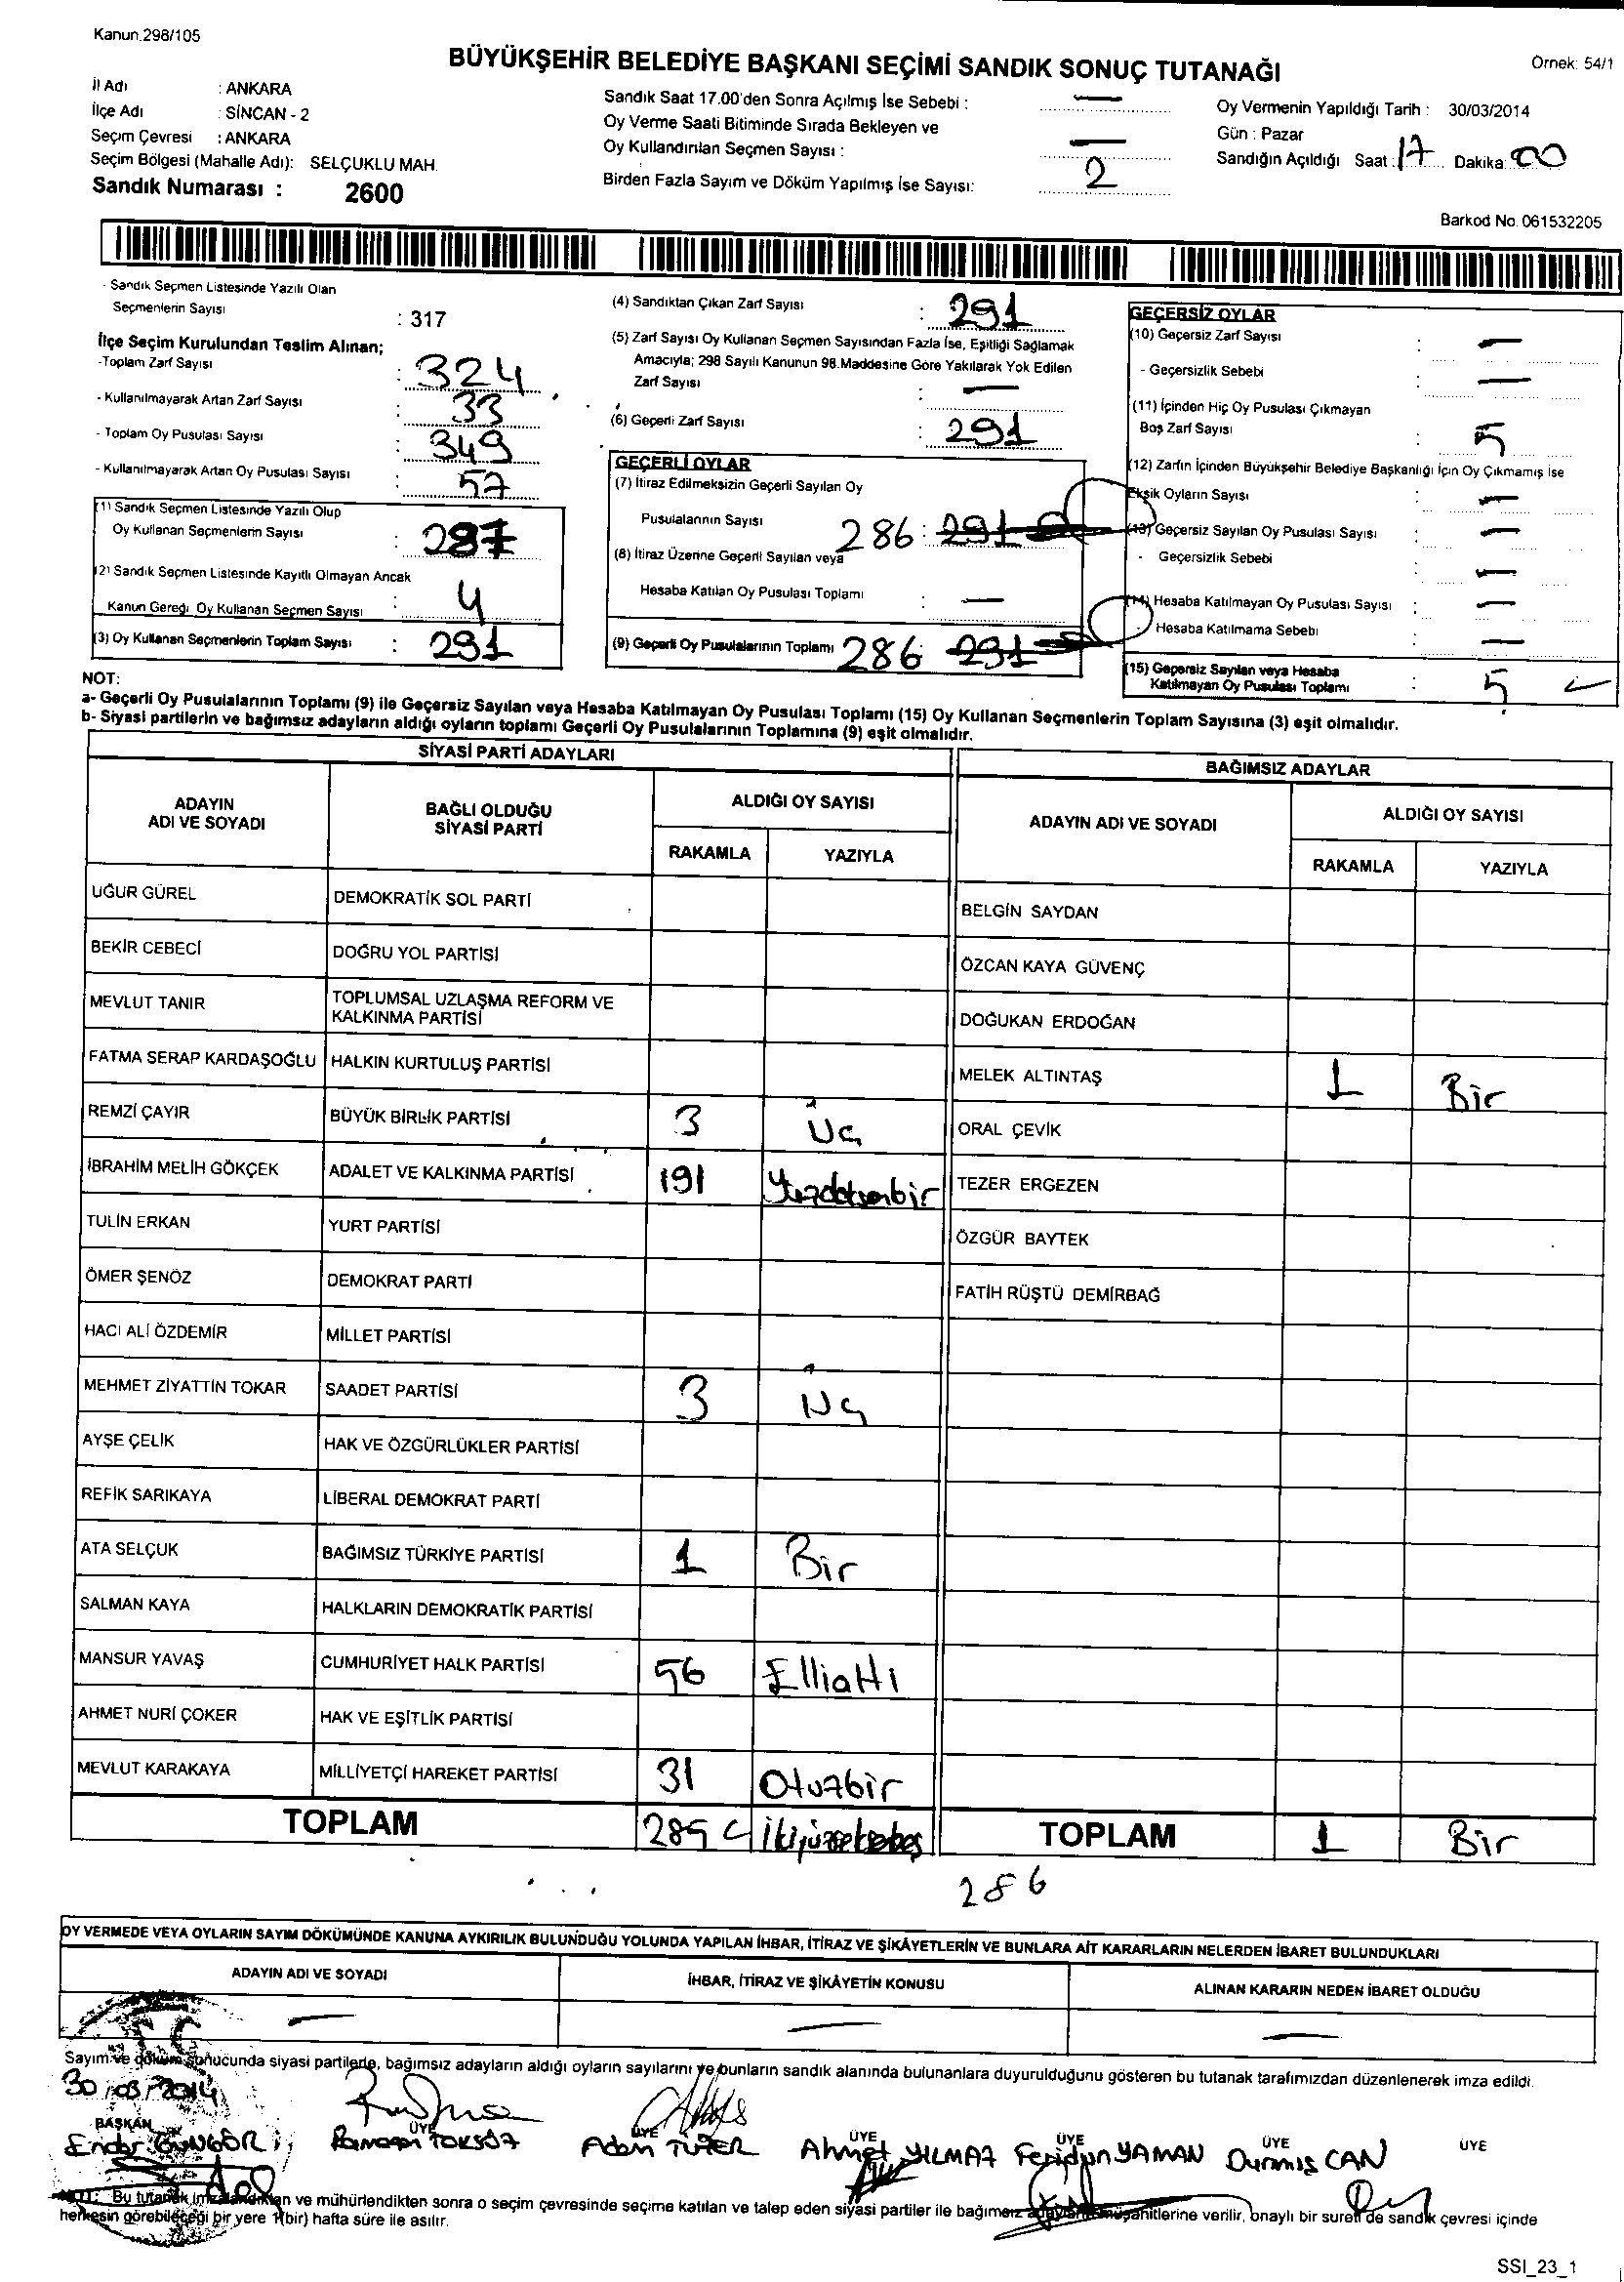 Kanun.298/105
BÜYÜKŞEHİR BELEDİYE BAŞKANI SEÇİMİ SANDIK SONUÇ TUTANAĞI
Örnek: 54/1
İl Adı : ANKARA
İlçe Adı : SİNCAN - 2
Seçim Çevresi : ANKARA
Seçim Bölgesi (Mahalle Adı): SELÇUKLU MAH.
Sandık Numarası : 2600
Sandık Saat 17.00'den Sonra Açılmış İse Sebebi : —
Oy Verme Saati Bitiminde Sırada Bekleyen ve
Oy Kullandırılan Seçmen Sayısı : —
Birden Fazla Sayım ve Döküm Yapılmış İse Sayısı: 2
Oy Vermenin Yapıldığı Tarih : 30/03/2014
Gün : Pazar
Sandığın Açıldığı Saat : 17 Dakika: 00
Barkod No. 061532205
- Sandık Seçmen Listesinde Yazılı Olan
Seçmenlerin Sayısı : 317
İlçe Seçim Kurulundan Teslim Alınan;
-Toplam Zarf Sayısı : 324
- Kullanılmayarak Artan Zarf Sayısı : 33
- Toplam Oy Pusulası Sayısı : 349
- Kullanılmayarak Artan Oy Pusulası Sayısı : 57
(1) Sandık Seçmen Listesinde Yazılı Olup
Oy Kullanan Seçmenlerin Sayısı : 287
(2) Sandık Seçmen Listesinde Kayıtlı Olmayan Ancak
Kanun Gereği Oy Kullanan Seçmen Sayısı : 4
(3) Oy Kullanan Seçmenlerin Toplam Sayısı : 291
(4) Sandıktan Çıkan Zarf Sayısı : 291
(5) Zarf Sayısı Oy Kullanan Seçmen Sayısından Fazla İse, Eşitliği Sağlamak
Amacıyla; 298 Sayılı Kanunun 98.Maddesine Göre Yakılarak Yok Edilen
Zarf Sayısı : —
(6) Geçerli Zarf Sayısı : 291
GEÇERLİ OYLAR
(7) İtiraz Edilmeksizin Geçerli Sayılan Oy
Pusulalarının Sayısı 286 : 291
(8) İtiraz Üzerine Geçerli Sayılan veya
Hesaba Katılan Oy Pusulası Toplamı : —
(9) Geçerli Oy Pusulalarının Toplamı 286 291
GEÇERSİZ OYLAR
(10) Geçersiz Zarf Sayısı : —
- Geçersizlik Sebebi : —
(11) İçinden Hiç Oy Pusulası Çıkmayan
Boş Zarf Sayısı : 5
(12) Zarfın İçinden Büyükşehir Belediye Başkanlığı İçin Oy Çıkmamış ise
Eksik Oyların Sayısı : —
(13) Geçersiz Sayılan Oy Pusulası Sayısı : —
- Geçersizlik Sebebi : —
(14) Hesaba Katılmayan Oy Pusulası Sayısı : —
- Hesaba Katılmama Sebebi : —
(15) Geçersiz Sayılan veya Hesaba
Katılmayan Oy Pusulası Toplamı : 5
NOT:
a- Geçerli Oy Pusulalarının Toplamı (9) ile Geçersiz Sayılan veya Hesaba Katılmayan Oy Pusulası Toplamı (15) Oy Kullanan Seçmenlerin Toplam Sayısına (3) eşit olmalıdır.
b- Siyasi partilerin ve bağımsız adayların aldığı oyların toplamı Geçerli Oy Pusulalarının Toplamına (9) eşit olmalıdır.
SİYASİ PARTİ ADAYLARI
ADAYIN ADI VE SOYADI BAĞLI OLDUĞU SİYASİ PARTİ ALDIĞI OY SAYISI
RAKAMLA YAZIYLA
UĞUR GÜREL DEMOKRATİK SOL PARTİ
BEKİR CEBECİ DOĞRU YOL PARTİSİ
MEVLUT TANIR TOPLUMSAL UZLAŞMA REFORM VE KALKINMA PARTİSİ
FATMA SERAP KARDAŞOĞLU HALKIN KURTULUŞ PARTİSİ
REMZİ ÇAYIR BÜYÜK BİRLİK PARTİSİ 3 Üç
İBRAHİM MELİH GÖKÇEK ADALET VE KALKINMA PARTİSİ 191 Yüzdoksanbir
TULİN ERKAN YURT PARTİSİ
ÖMER ŞENÖZ DEMOKRAT PARTİ
HACI ALİ ÖZDEMİR MİLLET PARTİSİ
MEHMET ZİYATTİN TOKAR SAADET PARTİSİ 3 Üç
AYŞE ÇELİK HAK VE ÖZGÜRLÜKLER PARTİSİ
REFİK SARIKAYA LİBERAL DEMOKRAT PARTİ
ATA SELÇUK BAĞIMSIZ TÜRKİYE PARTİSİ 1 Bir
SALMAN KAYA HALKLARIN DEMOKRATİK PARTİSİ
MANSUR YAVAŞ CUMHURİYET HALK PARTİSİ 56 Elliatı
AHMET NURİ ÇOKER HAK VE EŞİTLİK PARTİSİ
MEVLUT KARAKAYA MİLLİYETÇİ HAREKET PARTİSİ 31 Otuzbir
TOPLAM 285 İkiyüzseksebeş
BAĞIMSIZ ADAYLAR
ADAYIN ADI VE SOYADI ALDIĞI OY SAYISI
RAKAMLA YAZIYLA
BELGİN SAYDAN
ÖZCAN KAYA GÜVENÇ
DOĞUKAN ERDOĞAN
MELEK ALTINTAŞ 1 Bir
ORAL ÇEVİK
TEZER ERGEZEN
ÖZGÜR BAYTEK
FATİH RÜŞTÜ DEMİRBAĞ
TOPLAM 1 Bir
286
OY VERMEDE VEYA OYLARIN SAYIM DÖKÜMÜNDE KANUNA AYKIRILIK BULUNDUĞU YOLUNDA YAPILAN İHBAR, İTİRAZ VE ŞİKÂYETLERİN VE BUNLARA AİT KARARLARIN NELERDEN İBARET BULUNDUKLARI
ADAYIN ADI VE SOYADI İHBAR, İTİRAZ VE ŞİKÂYETİN KONUSU ALINAN KARARIN NEDEN İBARET OLDUĞU
— — —
Sayım ve döküm sonucunda siyasi partilerle, bağımsız adayların aldığı oyların sayılarını ve bunların sandık alanında bulunanlara duyurulduğunu gösteren bu tutanak tarafımızdan düzenlenerek imza edildi.
30/03/2014
BAŞKAN ÜYE ÜYE ÜYE ÜYE ÜYE ÜYE
Ender GÜNGÖR Ramazan TOKSÖZ Adem Ahmet YILMAZ Feridun YAMAN Durmış CAN
NOT: Bu tutanak imzalandıktan ve mühürlendikten sonra o seçim çevresinde seçime katılan ve talep eden siyasi partiler ile bağımsız adayların müşahitlerine verilir, onaylı bir sureti de sandık çevresi içinde
herkesin görebileceği bir yere 1(bir) hafta süre ile asılır.
SSI_23_1